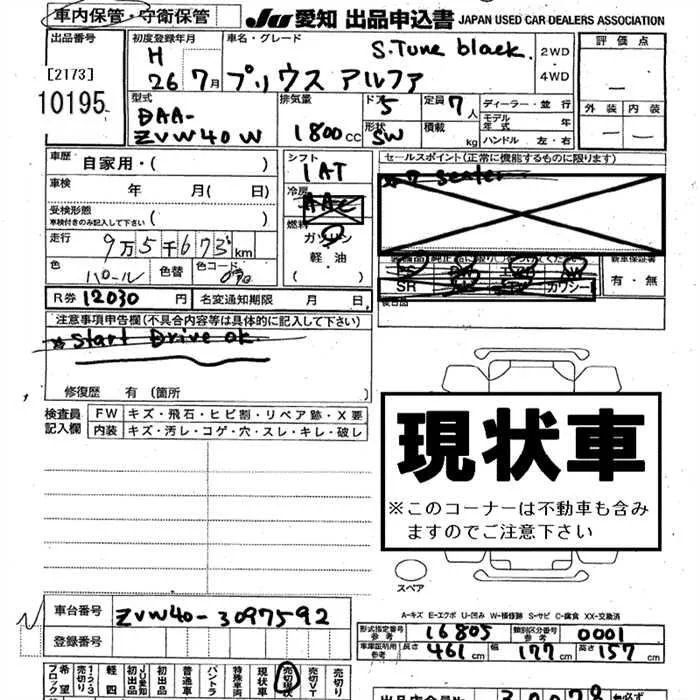 車内保管・守衛保管
JU愛知 出品申込書 JAPAN USED CAR DEALERS ASSOCIATION
出品番号 初度登録年月 車名・グレード
[2173]
10195
H
26 7月
S.Tune black.
プリウス アルファ
2WD
・
4WD
評価点
外装 内装
型式 排気量 ドア 5 定員 7人 ディーラー・並行
DAA-
ZVW40W
1800cc
形状 SW
積載 kg
モデル年式 年
ハンドル 左・右
車歴 自家用・( )
車検 年 月( 日)
受検形態
車検付きのみ記入して下さい ( )
走行 9万5千673km
色 パール 色替 色コード 070
シフト
1AT
冷房
AAC
燃料
ガソリン
軽油
セールスポイント(正常に機能するものに限ります)
7 Seater
PS PW AW
SR カワシート
新車保証書
有・無
R券 12030 円 名変通知期限 月 日
注意事項申告欄(不具合内容等は具体的に記入して下さい)
Start Drive ok.
修復歴 有 (箇所
検査員
記入欄
FW キズ・飛石・ヒビ割・リペア跡・X要
内装 キズ・汚レ・コゲ・穴・スレ・キレ・破レ
現状車
※このコーナーは不動車も含み
ますのでご注意下さい
スペア
A-キズ E-エクボ U-凹み W-補修跡 S-サビ C-腐食 XX-交換済
車台番号 ZVW40-3097592
登録番号
形式指定番号 参考 16805 類別区分番号 参考 0001
車庫証明用 参考 長さ 461cm 幅 177cm 高さ 157cm
希望ブロック
売切り 1・2・3
軽四
JU愛知初出品
初出品
普通車
バントラ
特殊車両
現状車
売切現状
売切りVT
売切り